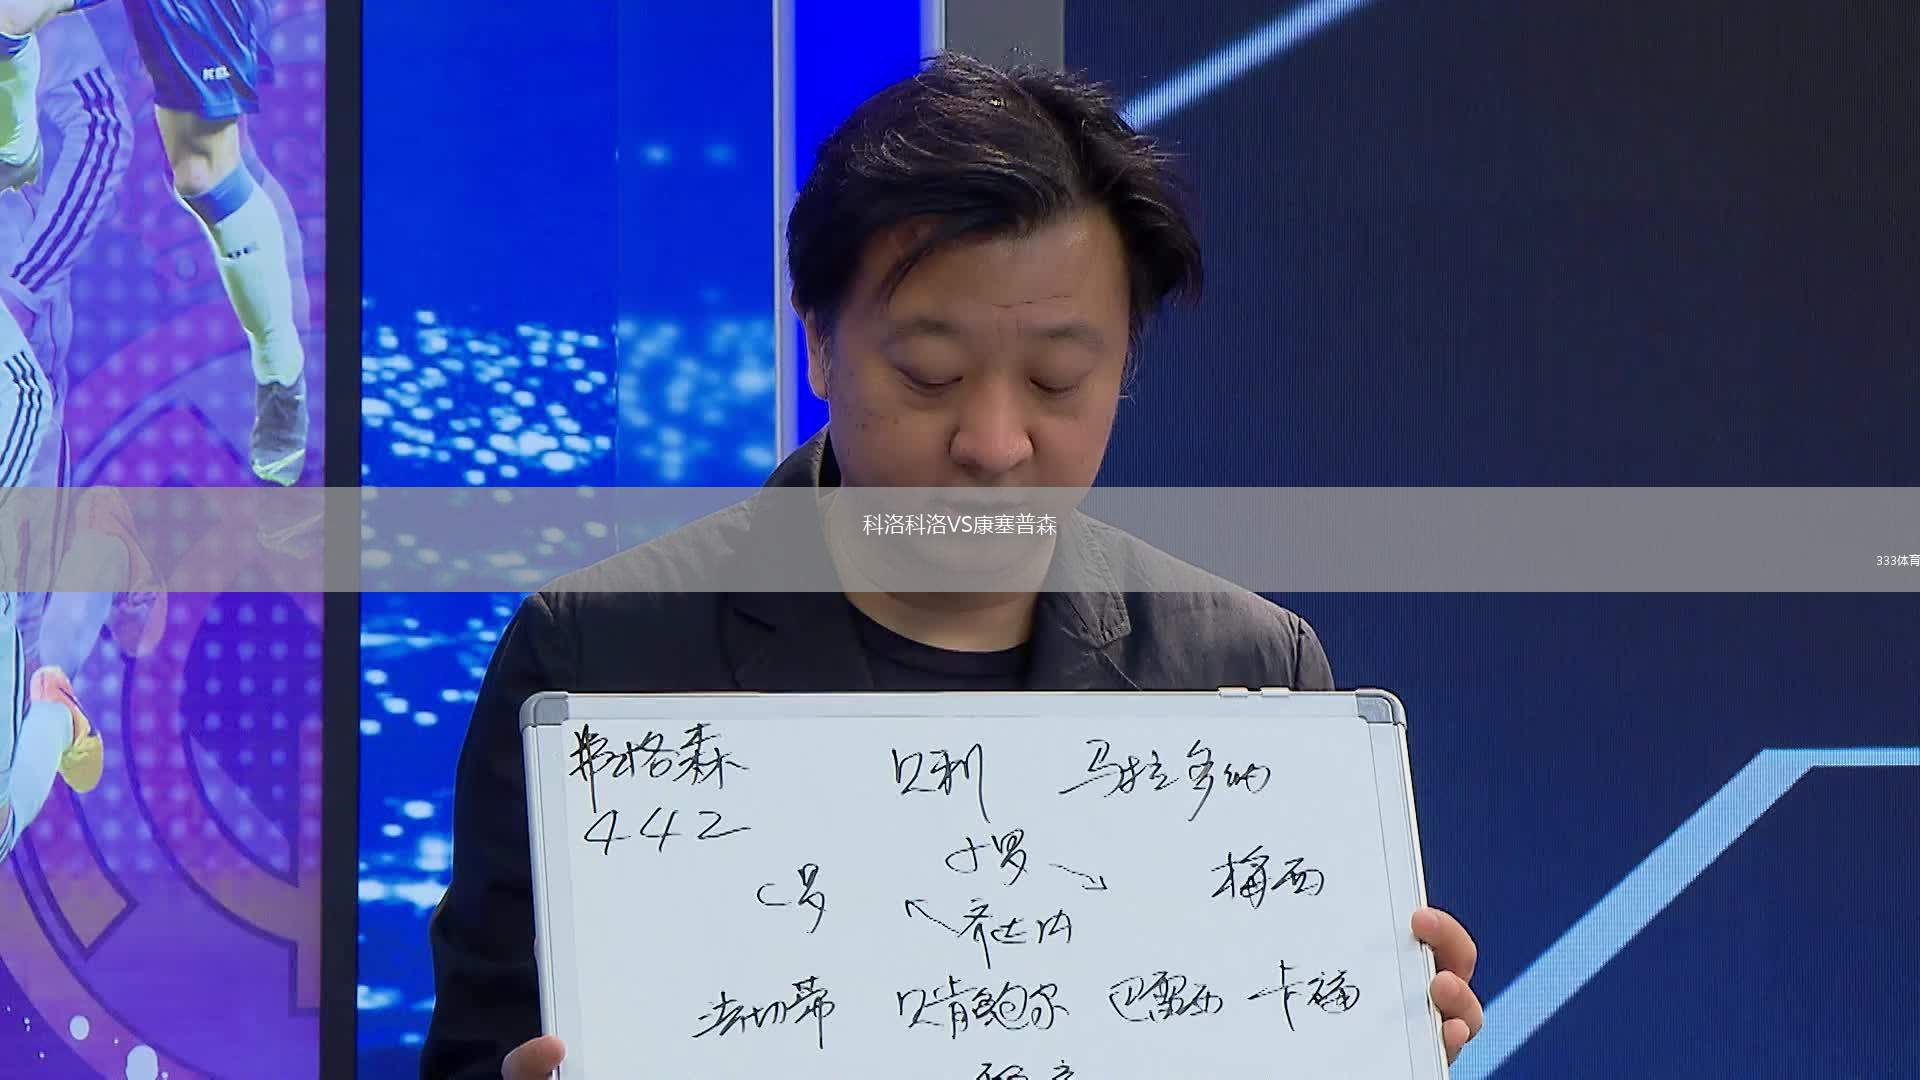 科洛科洛VS康塞普森
333体育
弗格森 贝利 马拉多纳
442
小罗
C罗 梅西
齐达内
法切蒂 贝肯鲍尔 巴雷西 卡福